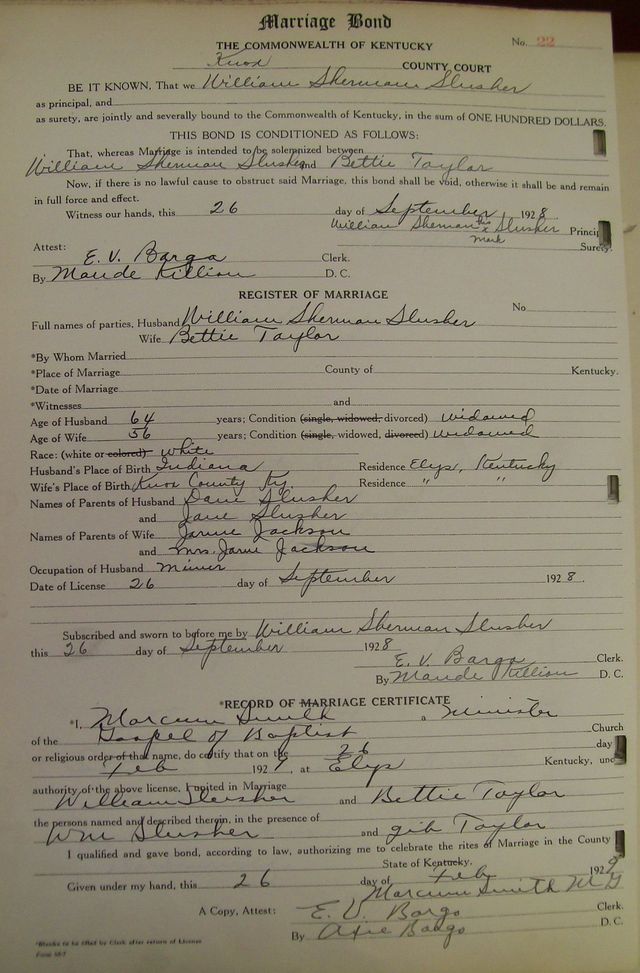 Marriage Bond
THE COMMONWEALTH OF KENTUCKY No. 22
Knox COUNTY COURT
BE IT KNOWN, That we William Sherman Slusher
as principal, and
as surety, are jointly and severally bound to the Commonwealth of Kentucky, in the sum of ONE HUNDRED DOLLARS.
THIS BOND IS CONDITIONED AS FOLLOWS:
That, whereas Marriage is intended to be solemnized between
William Sherman Slusher and Bettie Taylor
Now, if there is no lawful cause to obstruct said Marriage, this bond shall be void, otherwise it shall be and remain
in full force and effect.
Witness our hands, this 26 day of September 1928.
William Sherman his x mark Slusher Principal
Surety.
Attest:
E. V. Bargo Clerk.
By Maude Killion D. C.
REGISTER OF MARRIAGE
No
Full names of parties, Husband William Sherman Slusher
Wife Bettie Taylor
*By Whom Married
*Place of Marriage County of Kentucky.
*Date of Marriage
*Witnesses and
Age of Husband 64 years; Condition (single, widowed, divorced) widowed
Age of Wife 56 years; Condition (single, widowed, divorced) widowed
Race: (white or colored) white
Husband's Place of Birth Indiana Residence Elys, Kentucky
Wife's Place of Birth Knox County Ky. Residence " "
Names of Parents of Husband Dave Slusher
and Jane Slusher
Names of Parents of Wife Jackson
and Mrs. Jackson
Occupation of Husband Miner
Date of License 26 day of September 1928.
Subscribed and sworn to before me by William Sherman Slusher
this 26 day of September 1928
E. V. Bargo Clerk.
By Maude Killion D. C.
*RECORD OF MARRIAGE CERTIFICATE
*I, Marcum Smith a Minister
of the Gospel of Baptist Church
or religious order of that name, do certify that on the 26 day
Feb 1929, at Elys Kentucky, under
authority of the above license, I united in Marriage
William Slusher and Bettie Taylor
the persons named and described therein, in the presence of
Wm Slusher and gib Taylor
I qualified and gave bond, according to law, authorizing me to celebrate the rites of Marriage in the County
State of Kentucky.
Given under my hand, this 26 day of Feb 1929
Marcum Smith M G
A Copy, Attest: E. V. Bargo C.
By Bargo D. C.
*Blanks to be filled by Clerk after return of License